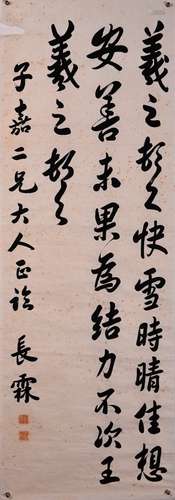 羲之頓首快雪時晴佳想
安善未果為結力不次王
羲之頓首
子嘉二兄大人正謐
長霖